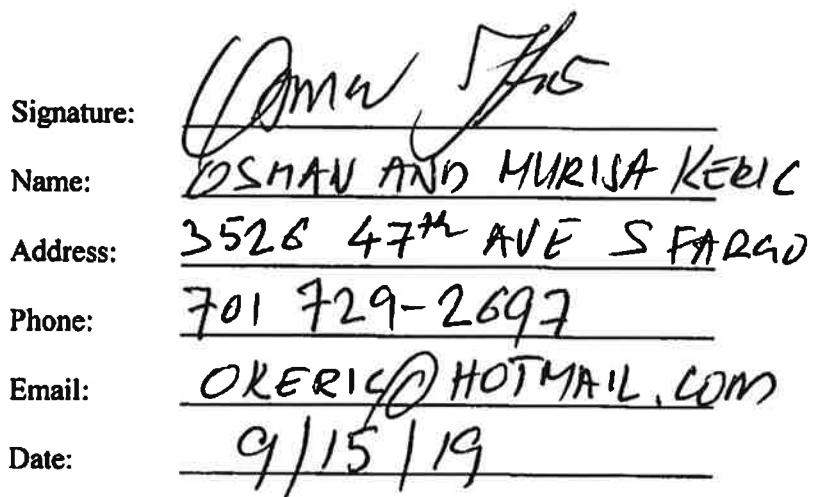 Signature:
Name: OSMAN AND MURISA KERIC
Address: 3526 47th AVE S FARGO
Phone: 701 729-2697
Email: OKERIC@HOTMAIL.COM
Date: 9/15/19